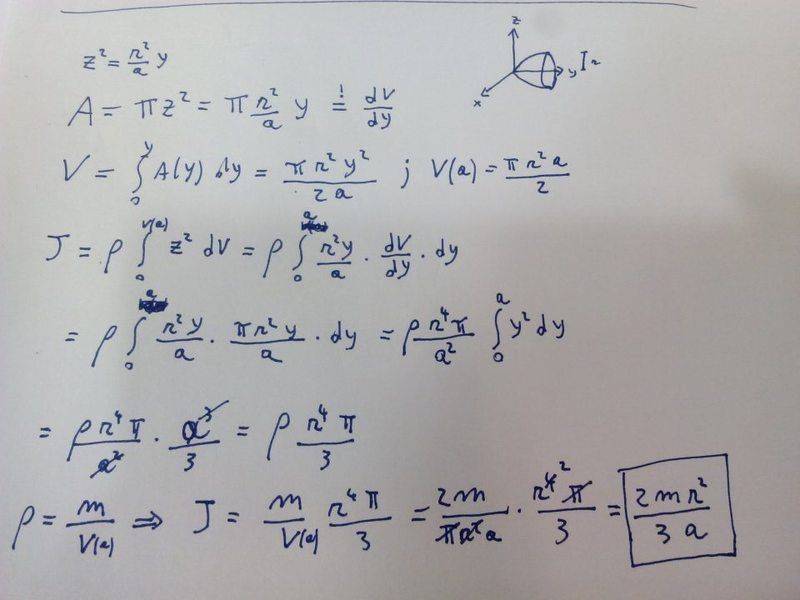 z² = r²/a y
z
y
r
x
A = πz² = π r²/a y =! dV/dy
V = ∫₀^y A(y) dy = πr²y²/2a ; V(a) = πr²a/2
J = ρ ∫₀^V(a) z² dV = ρ ∫₀^a r²y/a · dV/dy · dy
= ρ ∫₀^a r²y/a · πr²y/a · dy = ρ r⁴π/a² ∫₀^a y² dy
= ρ r⁴π/a² · a³/3 = ρ r⁴π/3
ρ = m/V(a) ⇒ J = m/V(a) r⁴π/3 = 2m/πr²a · r⁴²π/3 = 2mr²/3a